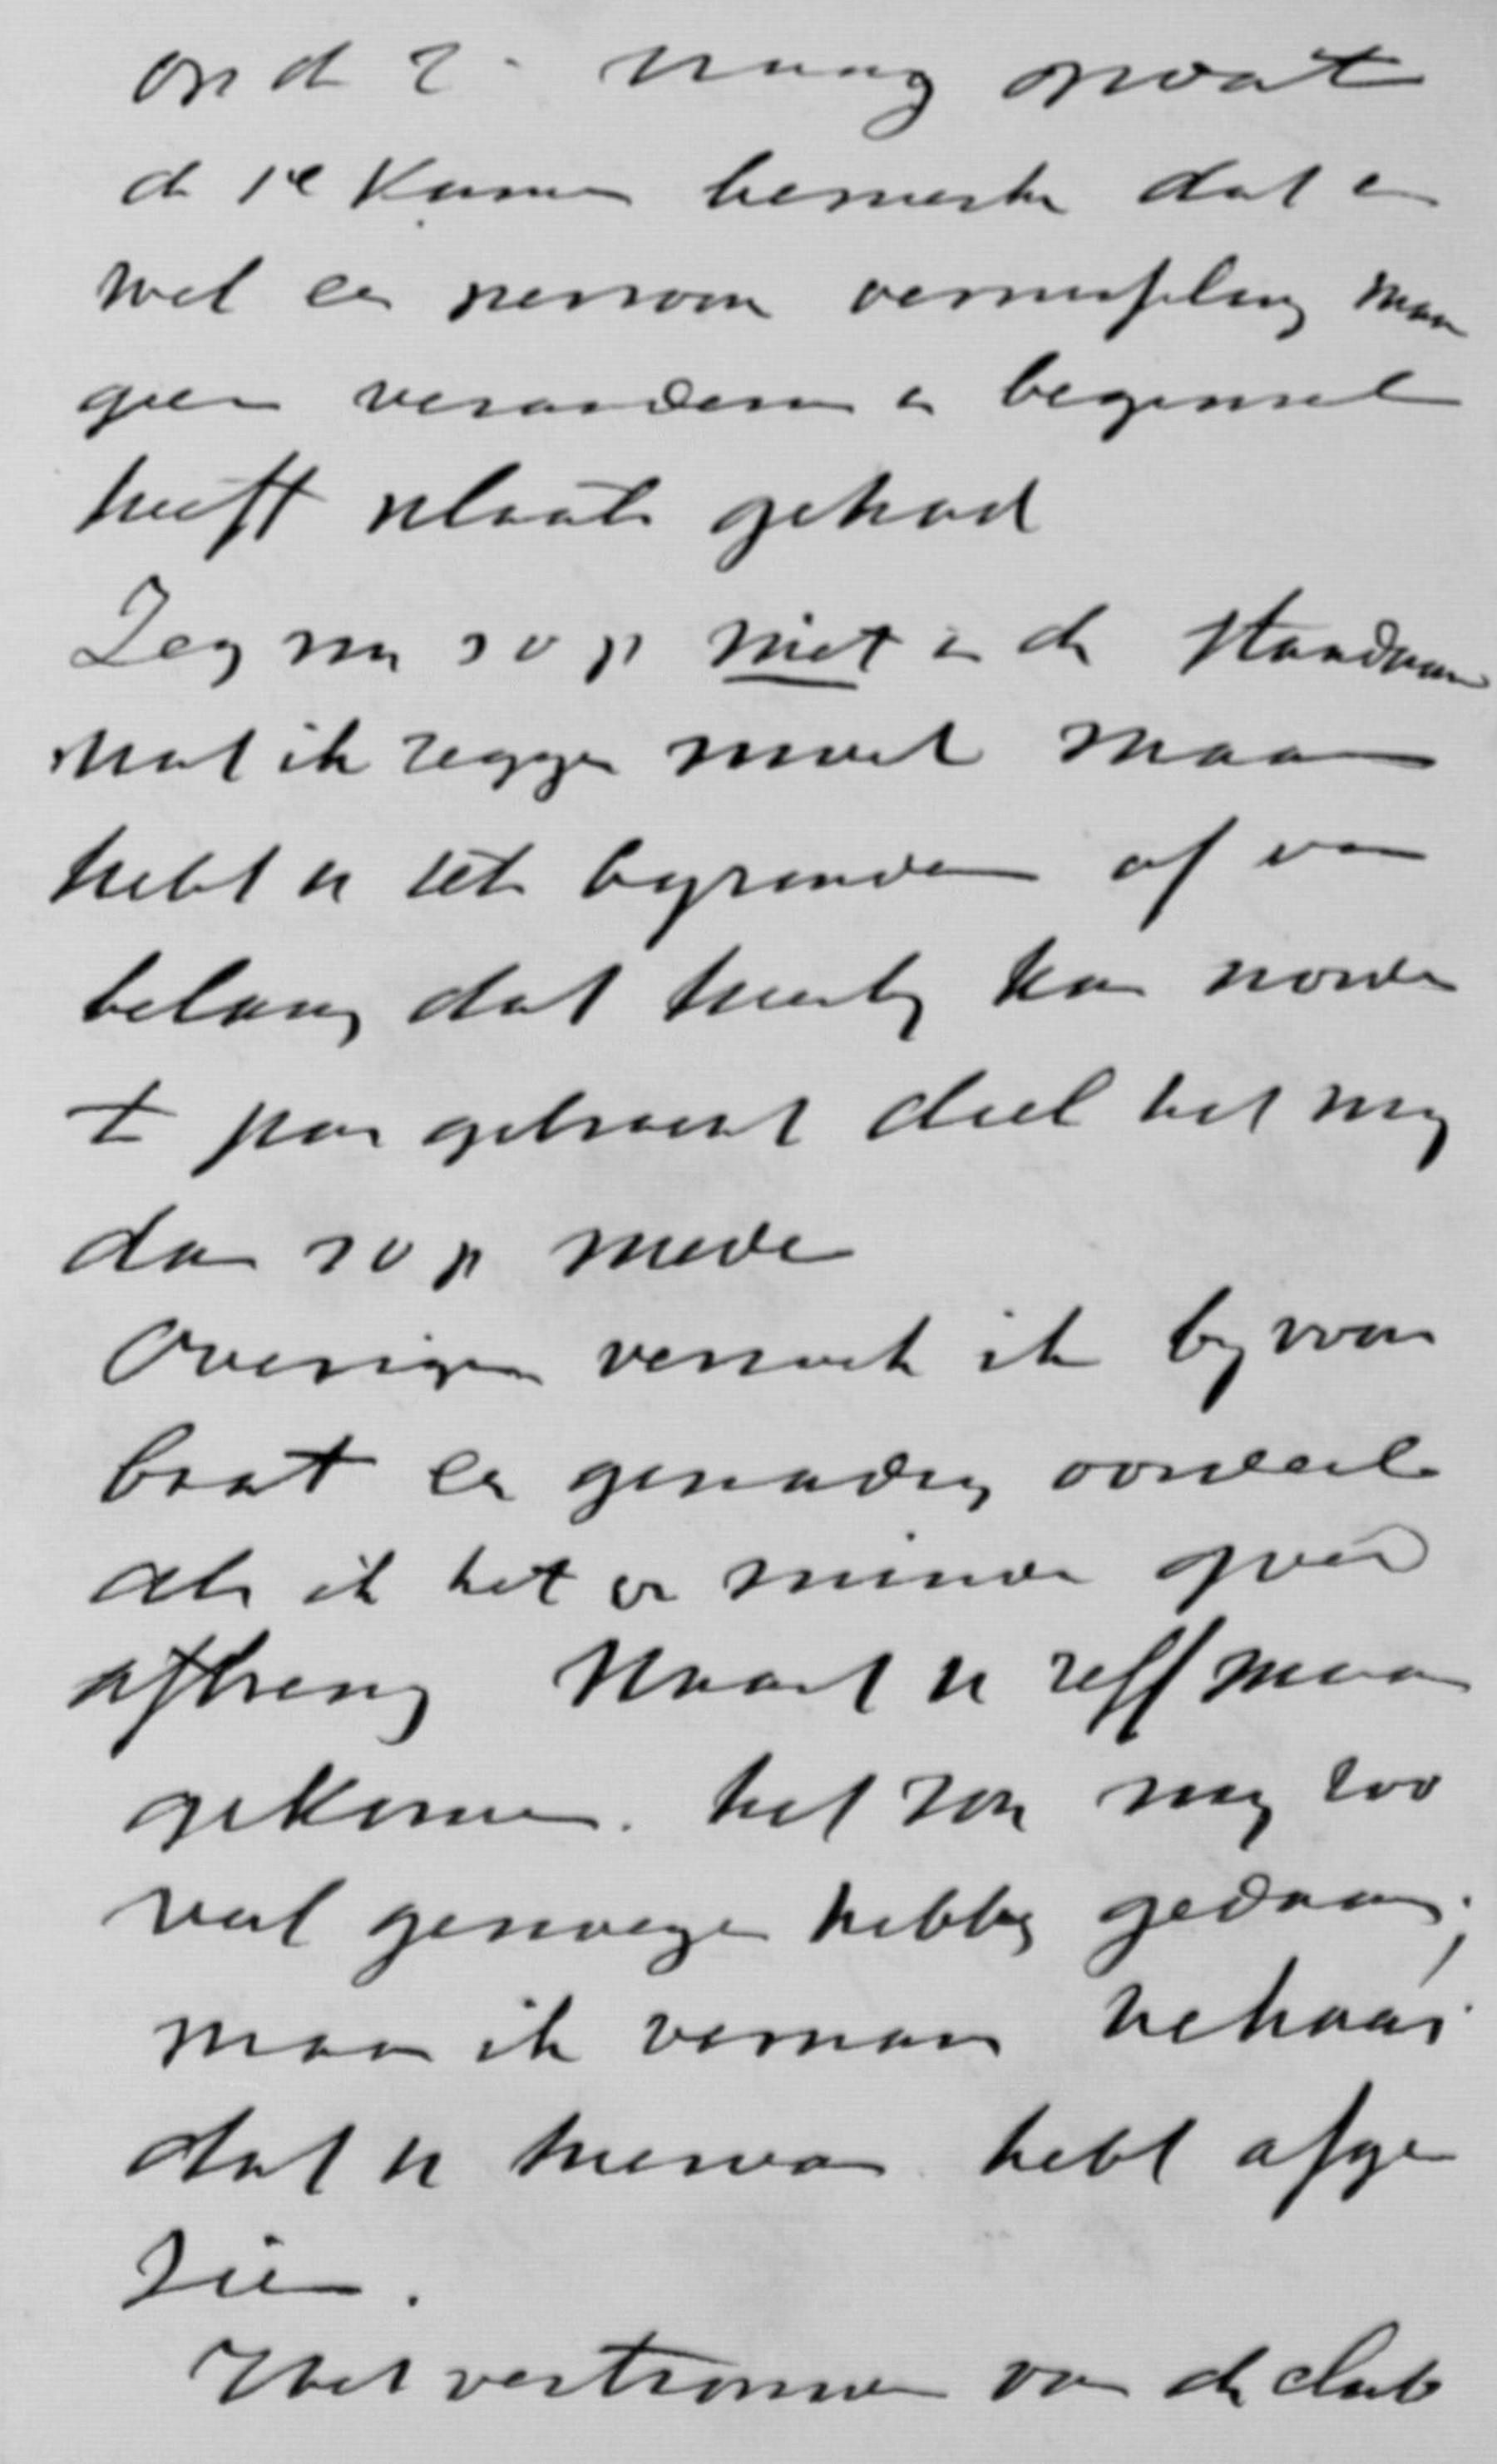 op de 2e vraag omvat
de 1e Kamer bemerkte dat er
wel een persoon verwisseling maar
geen verandering in beginsel
heeft plaats gehad
Zeg nu s v p niet in de Standaard
wat ik zeggen moet maar
hebt u iets byzonders of van
belang dat hierby kan worden
te pas gebracht deel het my
dan s v p mede
Overigens verzoek ik by voor
baat een genadig oordeel
als ik het er minder goed
afbreng Waart u zelf maar
gekomen. het zou my zoo
veel genoegen hebben gedaan;
maar ik vernam helaas
dat u hiervan hebt afge
zien.
Het vertrouwen van de club